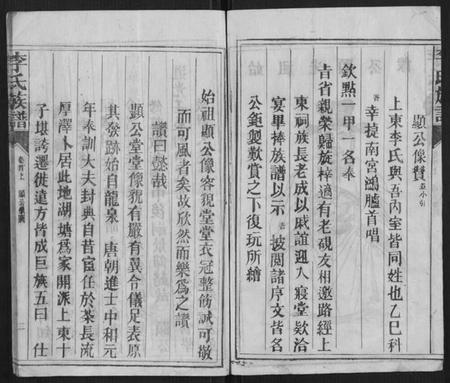 顯公像贊 並小引
上東李氏與吾內室皆同姓也乙巳科
吾 幸捷南宮鴻臚首唱
欽點一甲一名奉
旨省親榮歸旋梓適有老硯友相邀路經上
東祠族長老成以戚誼迎入寢堂欵洽
宴畢捧族譜以示 吾 披閲諸序文皆名
公鉅製歎賞之下復玩所繪
始祖顯公像容貎堂堂衣冠整飭誠可敬
而可風者矣故欣然而樂爲之讚
讚曰懿哉
顯公堂堂像貎有嚴有翼令儀足表原
其發跡始自龍泉 唐朝進士中和元
年奉訓大夫封典自昔宦任於茶長流
厚澤卜居此地湖塘爲家開派上東十
子堪誇遷徙遠方皆成巨族五曰仕
李氏族譜
卷首上 顯公像贊